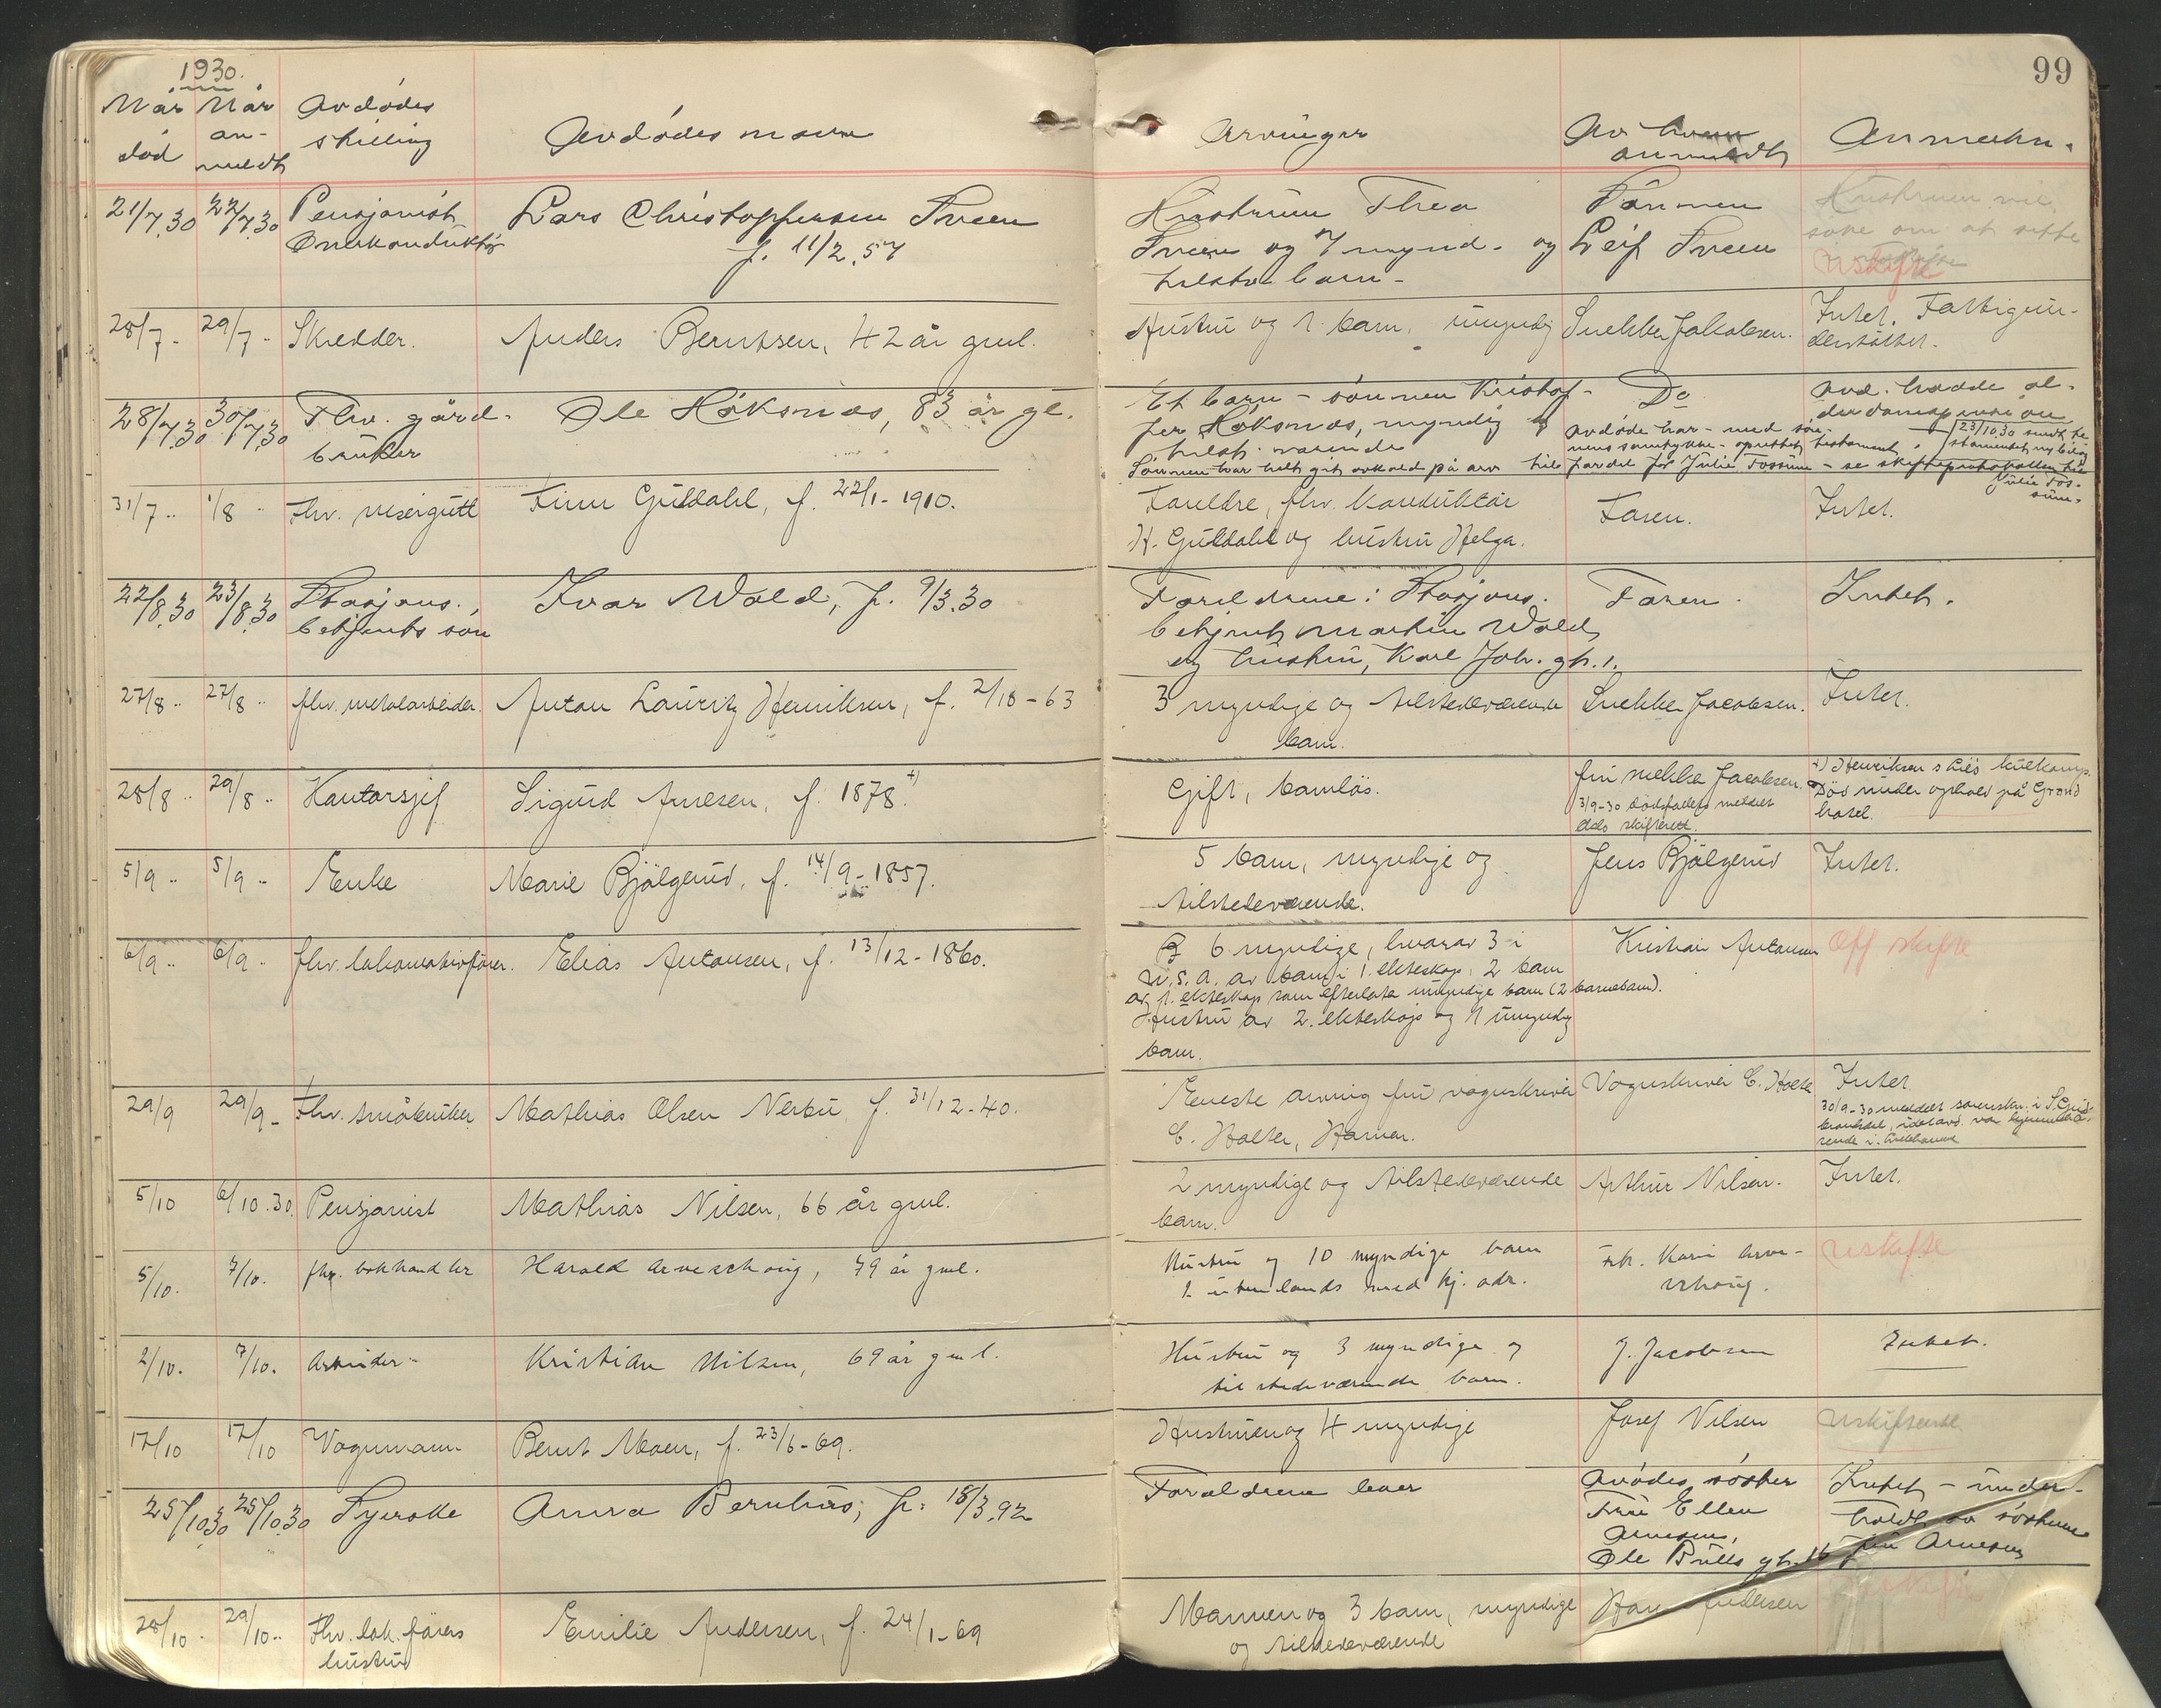 1930.
Når død
Når anmeldt
Avdødes stilling
Avdødes navn
Arvinger
Av hvem anmeldt
Anmerkn.
99
21/7.30 22/7.30 Pensjonist Lars Christophersen Sveen
Overkonduktør f. 11/2.57
Hustruen Thea Sønnen Hustruen vil
Sveen og 7 mynd. og Leif Sveen søke om at sitte
tilstv. barn - Uskifte
28/7 - 29/7 - Skredder. Anders Berntsen, 42 år gml.
Hustru og 1 barn, umyndig Snekker Jakobsen. Intet. Fattigun-
derstøttet.
28/7.30 30/7.30 Fhv. gård- Ole Høksnes, 83 år gl.
bruker
Et barn - sønnen Kristof- Do avd. hadde al-
fer Høksnes, myndig og avdøde har - med søn-
tilst. værende nens samtykke - oprettet testament,
Sønnen har helt git avkald på arv til fordel for Julie Fossum - se skifteprotokollen
31/7 .. 1/8 .. Fhv. visergutt Finn Guldahl, f. 22/1 - 1910.
Foreldre, fhv. konduktør Faren. Intet.
H. Guldahl og hustru Helga.
22/8.30 23/8.30 Stasjons- Ivar Wold, f. 9/3.30
betjents søn
Forældrene: Stasjons- Faren. Intet.
betjent Martin Wold
og hustru, Karl Joh. gt. 1.
27/8 .. 27/8 .. fhv. metalarbeider. Anton Lauritz Henriksen, f. 2/10 - 63
3 myndige og tilstedeværende Snekker Jacobsen. Intet.
barn.
28/8 .. 29/8 .. Kontorsjef Sigurd Arnesen, f. 1878. +)
Gift, barnløs. fru snekker Jacobsen. +) Henriksens
3/9-30 dødsfallet meldt Død under ophold på Grand
Oslo skifterett. hotel.
5/9 .. 5/9 .. Enke Marie Bjølgerud, f. 14/9 - 1857.
5 barn, myndige og Jens Bjølgerud Intet.
tilstedeværende.
6/9 .. 6/9 .. fhv. lokomotivfører. Elias Antonsen, f. 13/12 - 1860.
6 myndige, hvorav 3 i Kristian Antonsen Off skifte
U.S.A. av barn i 1. ekteskap, 2 barn
av 1. ekteskap som efterlate umyndige barn (2 barnebarn).
Hustru av 2. ekteskap og 1 umyndig
barn.
29/9 29/9 - Fhv. småbruker Mathias Olsen Nerbu f. 31/12 - 40.
Eneste arving fru vognskriver Vognskriver C. Holter Intet.
C. Holter, Hamar. 30/9-30 meldt sorenskr. i S. Gud-
brandsdal, idet avd. var hjemmehø-
rende i
5/10 6/10.30. Pensjonist Mathias Nilsen, 66 år gml.
2 myndige og tilstedeværende Arthur Nilsen. Intet.
barn.
5/10. 7/10. fhv. bokhandler Harald Arveschoug, 79 år gml.
Hustru og 10 myndige barn Frk. Kari Arve- Uskifte
1 utenlands med kj. adr. schoug.
2/10. 7/10. Arbeider - Kristian Nilsen, 69 år gml.
Hustru og 3 myndige og J. Jacobsen Intet.
tilstedeværende barn.
17/10 17/10 Vognmann Bernt Moen, f. 23/6 - 69.
Hustruen og 4 myndige Josef Nilsen Uskiftende
25/10.30 25/10.30 Syerske Anna Bernhus, f. 15/3.92
Forældrene lever Avdødes søster Intet - under-
Fru Ellen holdt av søsteren
Arnesen, fru Arnesen
Ole Bulls gt. 16
28/10 - 29/10 .. Fhv. lok. førers Emilie Andersen, f. 24/1 - 69
hustru
Mannen og 3 barn, myndige Andersen
og tilstedeværende